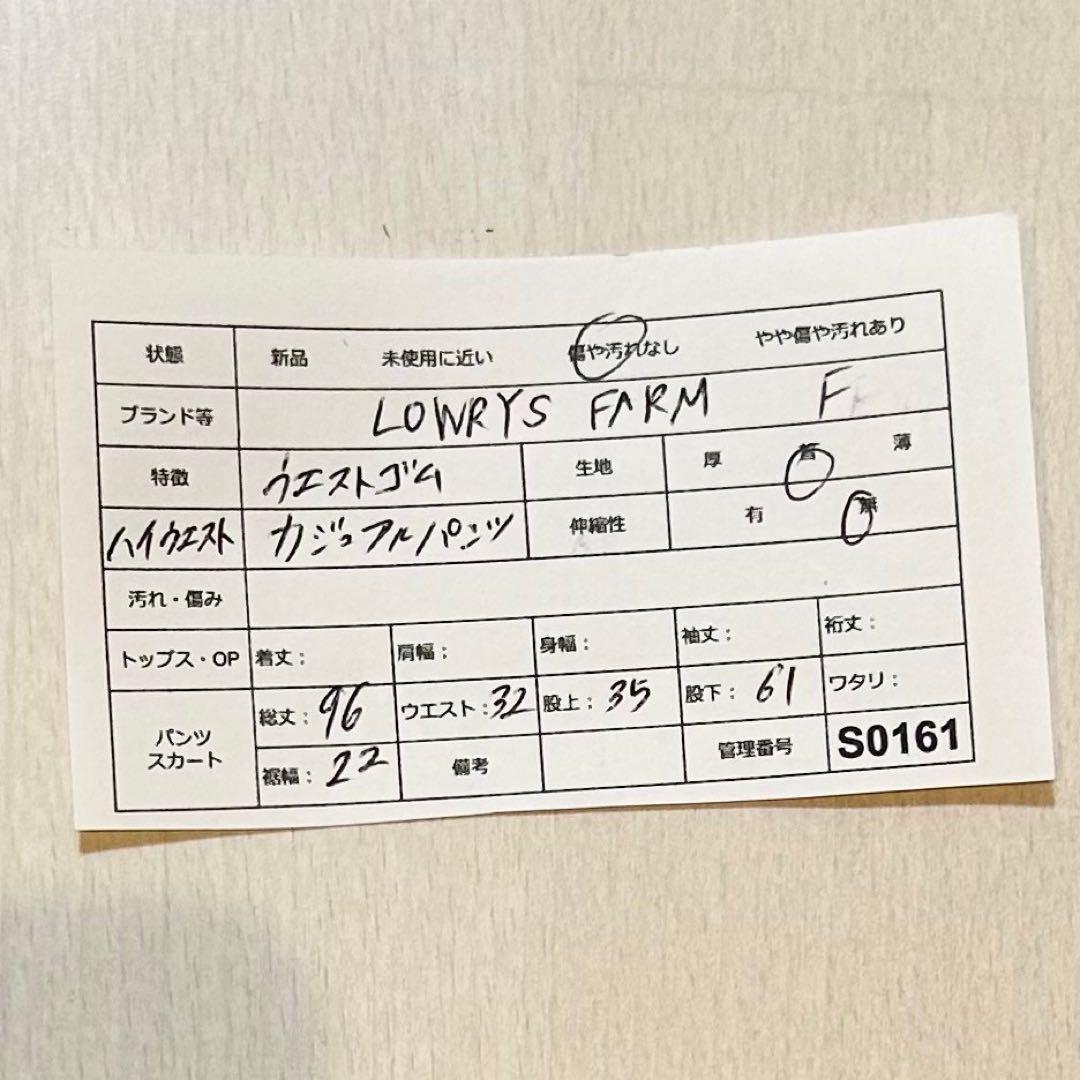 状態 新品 未使用に近い 傷や汚れなし やや傷や汚れあり
ブランド等 LOWRYS FARM F
特徴 ウエストゴム 生地 厚 普 薄
ハイウエスト カジュアルパンツ 伸縮性 有 無
汚れ・傷み
トップス・OP 着丈: 肩幅: 身幅: 袖丈: 裄丈:
パンツ スカート 総丈:96 ウエスト:32 股上:35 股下:61 ワタリ:
裾幅:22 備考 管理番号 S0161